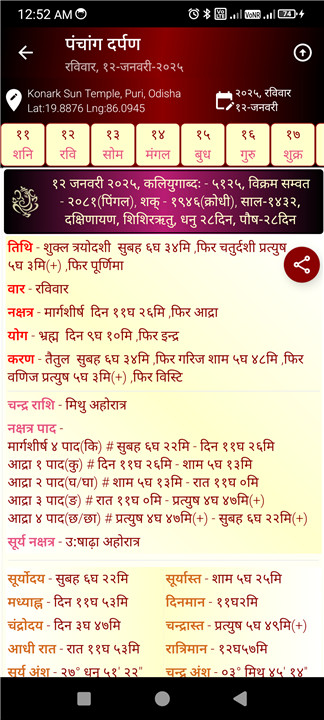 12:52 AM
74
पंचांग दर्पण
रविवार, १२-जनवरी-२०२५
Konark Sun Temple, Puri, Odisha
Lat:19.8876 Lng:86.0945
२०२५, रविवार
१२-जनवरी
११ १२ १३ १४ १५ १६ १७
शनि रवि सोम मंगल बुध गुरु शुक्र
१२ जनवरी २०२५, कलियुगाब्दः - ५१२५, विक्रम सम्वत
- २०८१(पिंगल), शक् - १९४६(क्रोधी), साल-१४३२,
दक्षिणायण, शिशिरऋतु, धनु २८दिन, पौष-२८दिन
तिथि - शुक्ल त्रयोदशी सुबह ६घ ३४मि ,फिर चतुर्दशी प्रत्युष
५घ ३मि(+) ,फिर पूर्णिमा
वार - रविवार
नक्षत्र - मार्गशीर्ष दिन ११घ २६मि ,फिर आद्रा
योग - भ्रह्म दिन ९घ १०मि ,फिर इन्द्र
करण - तैतुल सुबह ६घ ३४मि ,फिर गरिज शाम ५घ ४८मि ,फिर
वणिज प्रत्युष ५घ ३मि(+) ,फिर विस्टि
चन्द्र राशि - मिथु अहोरात्र
नक्षत्र पाद -
मार्गशीर्ष ४ पाद(कि) # सुबह ६घ २२मि - दिन ११घ २६मि
आद्रा १ पाद(कु) # दिन ११घ २६मि - शाम ५घ १३मि
आद्रा २ पाद(घ/घा) # शाम ५घ १३मि - रात ११घ ०मि
आद्रा ३ पाद(ङ) # रात ११घ ०मि - प्रत्युष ४घ ४७मि(+)
आद्रा ४ पाद(छ/छा) # प्रत्युष ४घ ४७मि(+) - सुबह ६घ २२मि(+)
सूर्य नक्षत्र - उ:षाढ़ा अहोरात्र
सूर्योदय - सुबह ६घ २२मि सूर्यास्त - शाम ५घ २५मि
मध्याह्न - दिन ११घ ५३मि दिनमान - ११घ२मि
चंद्रोदय - दिन ३घ ४७मि चन्द्रास्त - प्रत्युष ५घ ४९मि(+)
आधी रात - रात ११घ ५३मि रात्रिमान - १२घ५७मि
सूर्य अंश - २७° धनु ५१' २२" चन्द्र अंश - ०३° मिथु ४५' १४"